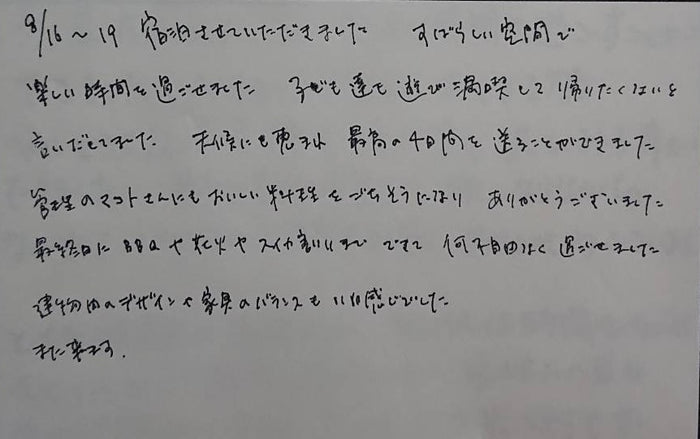 8/16～19 宿泊させていただきました すばらしい空間で
楽しい時間を過ごせました 子ども達も遊び満喫して帰りたくないと
言いだしてました 天候にも恵まれ 最高の4日間を送ることができました
管理のマコトさんにもおいしい料理をごちそうになり ありがとうございました
最終日にBBQや花火やスイカ割りまでできて 何不自由なく過ごせました
建物内のデザインや家具のバランスもいい感じでした
また来ます.